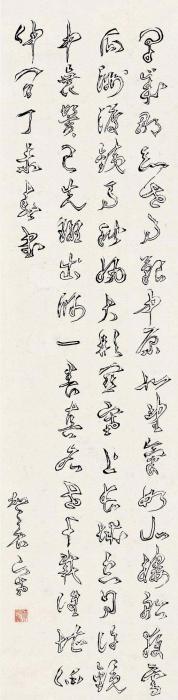 早歲那知世事艱中原北望氣如山樓船夜雪
瓜洲渡鐵馬秋風大散關塞上長城空自許鏡
中衰鬢已先斑出師一表真名世千載誰堪伯
仲間丁亥春